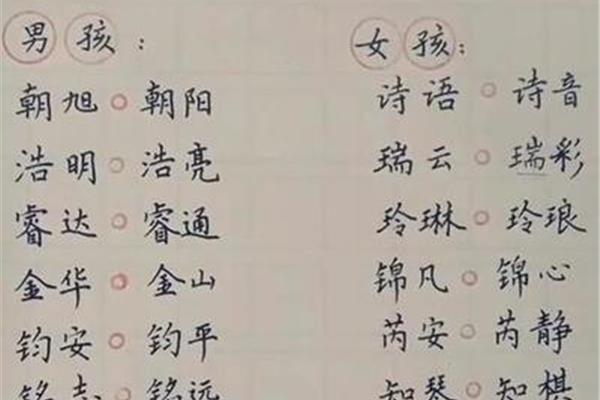 男孩： 女孩：
朝旭。朝阳 诗语。诗音
浩明。浩亮 瑞云。瑞彩
睿达。睿通 玲琳。玲琅
金华。金山 锦凡。锦心
钧安。钧平 芮安。芮静
铭志。铭远 知琴。知棋